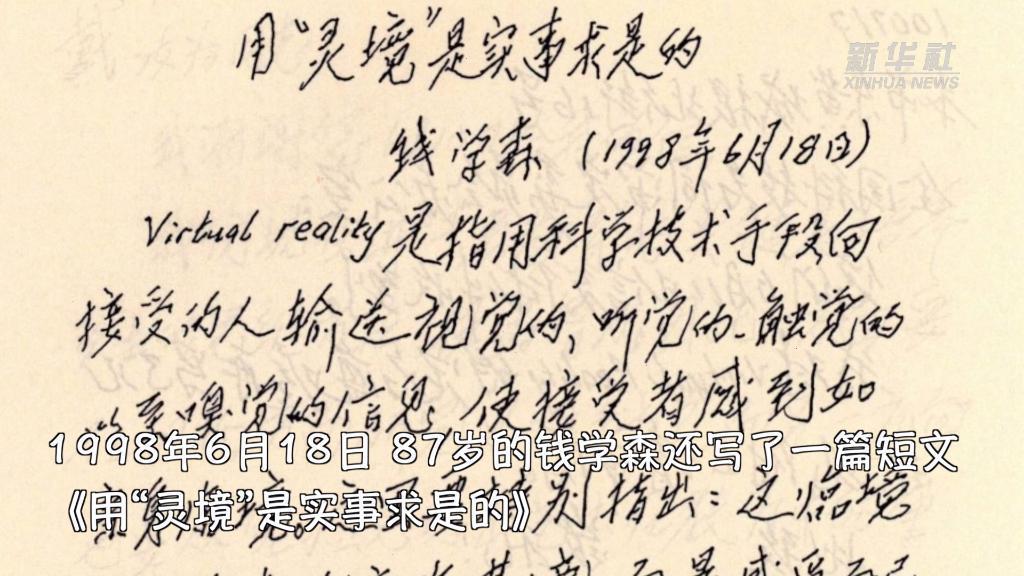 用“灵境”是实事求是的
新华社
XINHUA NEWS
钱学森（1998年6月18日）
Virtual reality是指用科学技术手段向
接受的人输送视觉的、听觉的、触觉的
以至嗅觉的信息，使接受者感到如
1998年6月18日 87岁的钱学森还写了一篇短文
《用“灵境”是实事求是的》
指出：这临境